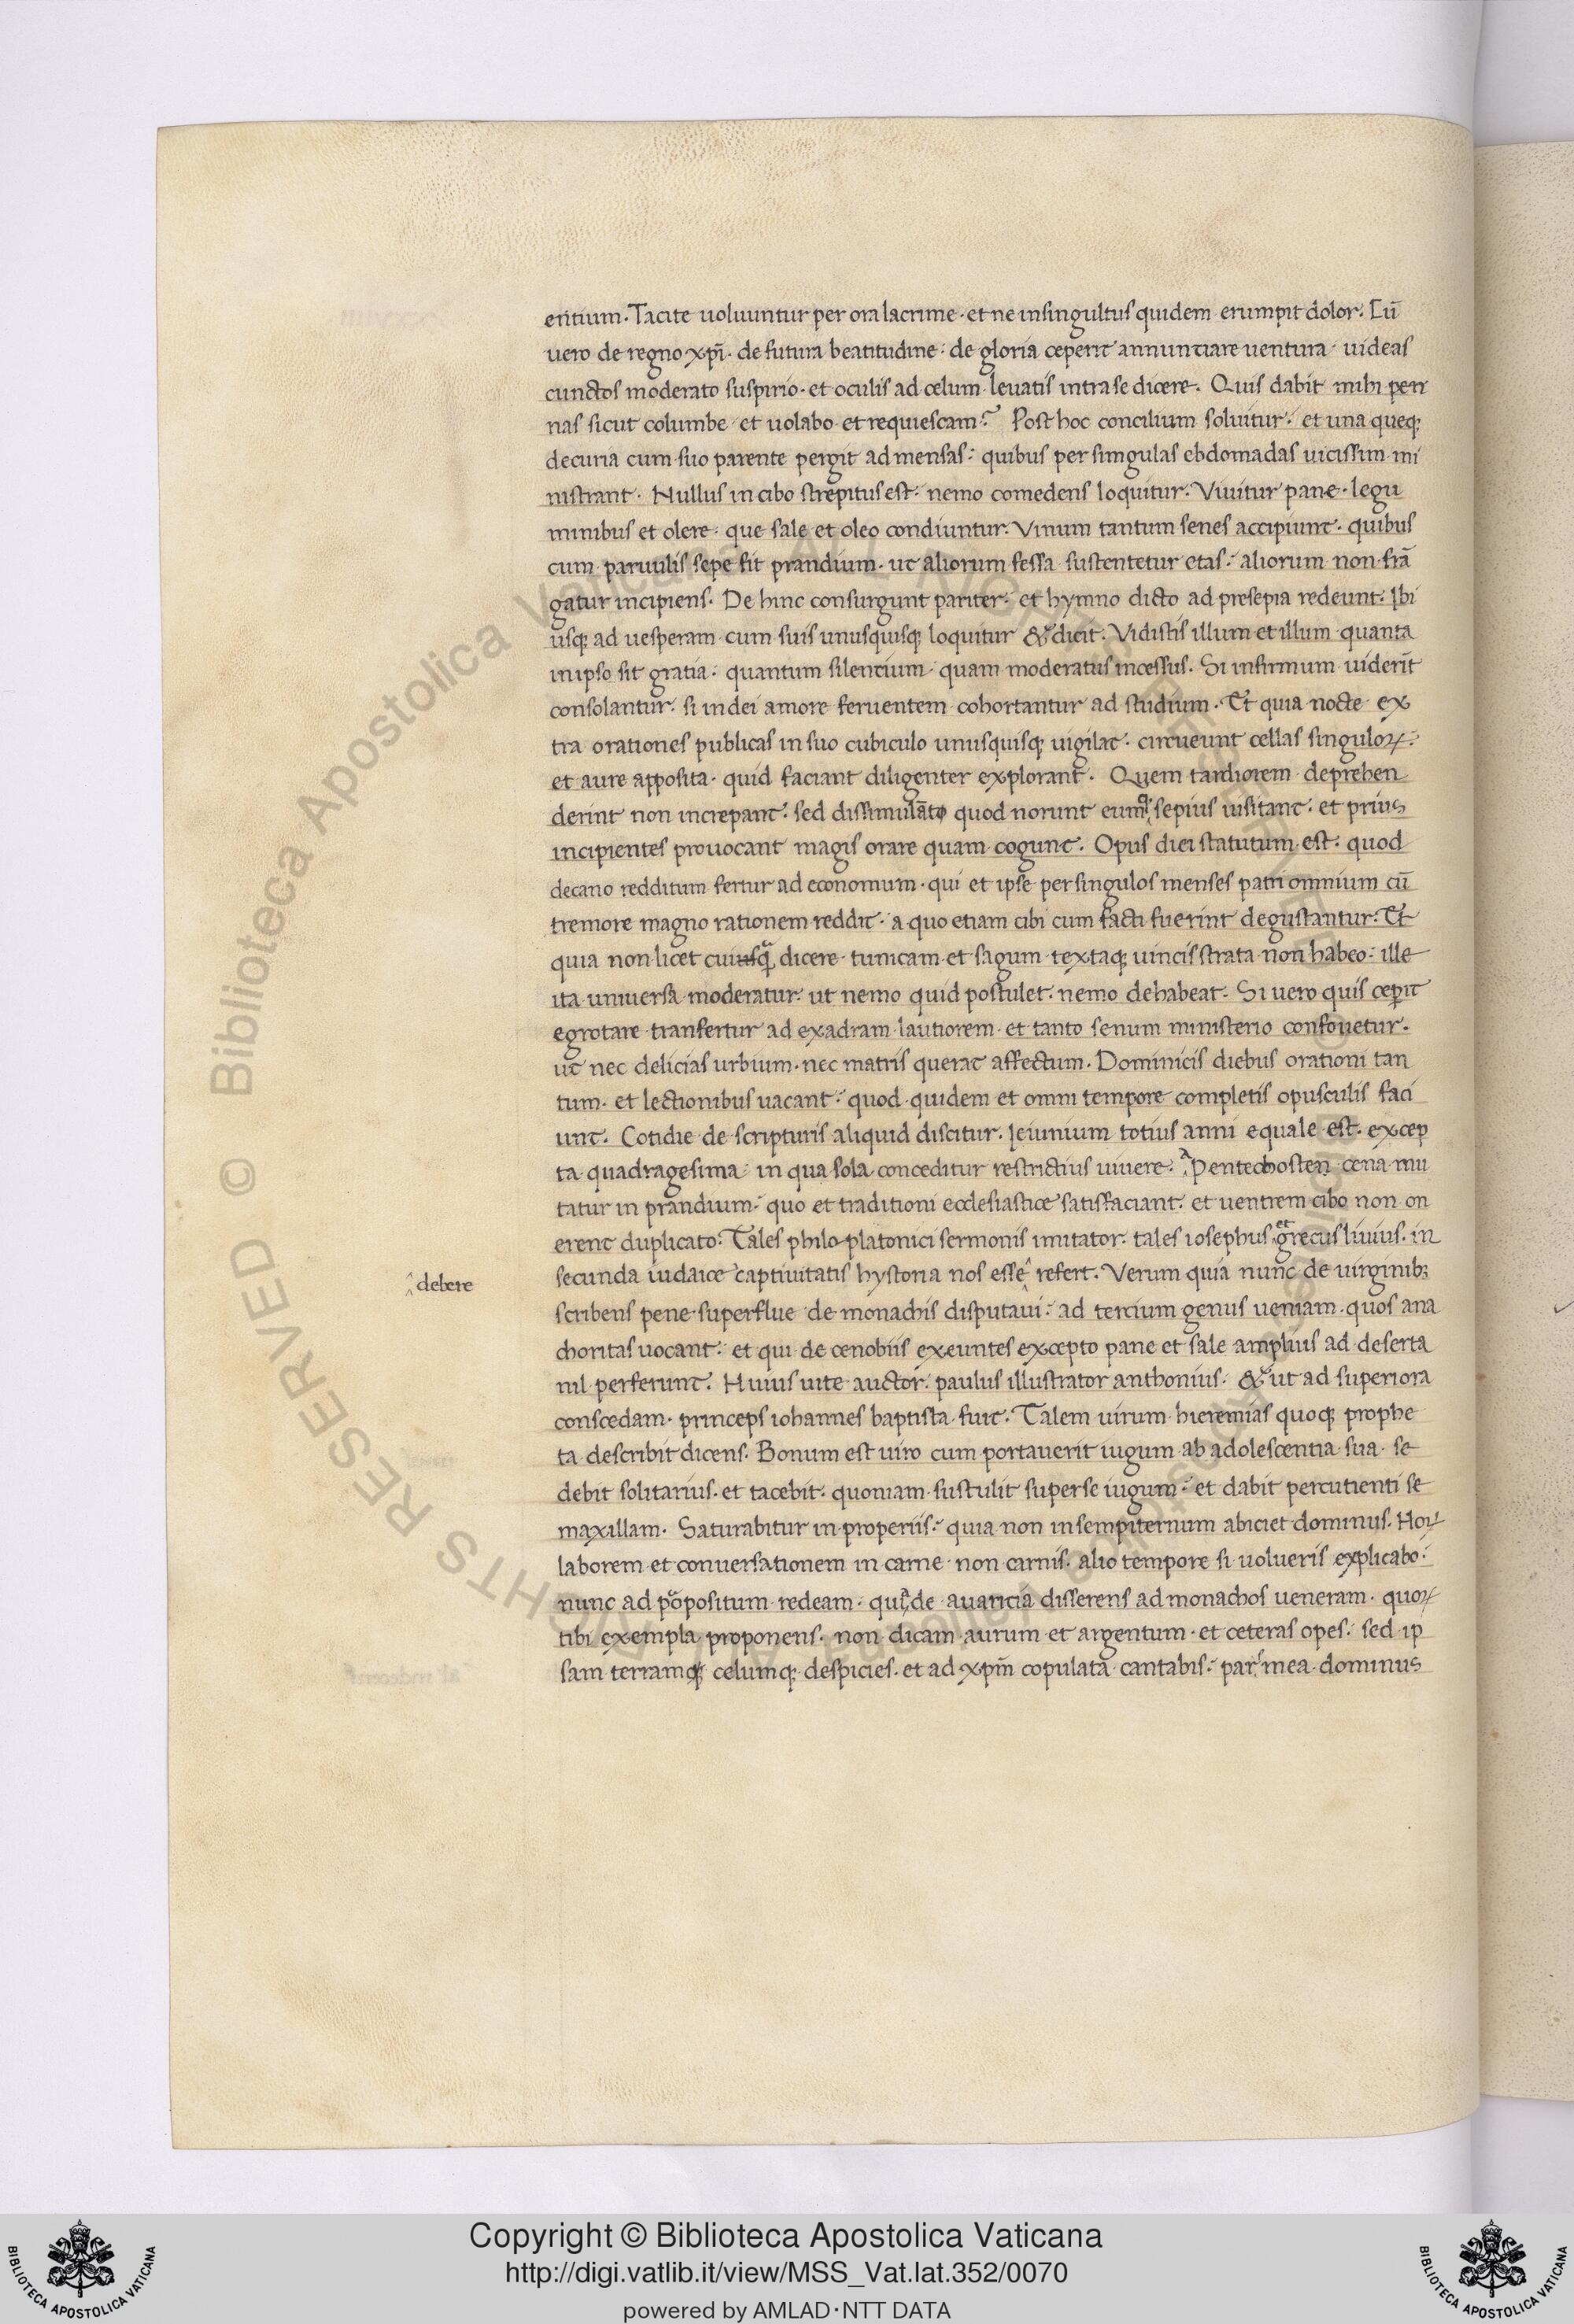 entium. Tacite uoluuntur per ora lacrime. et ne in singultus quidem erumpit dolor. Cū
uero de regno xp̄i. de futura beatitudine. de gloria ceperit annuntiare uentura. uideas
cunctos moderato suspirio. et oculis ad celum leuatis intra se dicere. Quis dabit mihi pen
nas sicut columbe et uolabo et requiescam? Post hoc concilium soluitur. et una queq;
decuria cum suo parente pergit ad mensas. quibus per singulas ebdomadas uicissim mi
nistrant. Nullus in cibo strepitus est. nemo comedens loquitur. Viuitur pane. legu
minibus et olere. que sale et oleo condiuntur. Vinum tantum senes accipiunt. quibus
cum paruulis sepe fit prandium. ut aliorum fessa sustentetur etas. aliorum non frā
gatur incipiens. De hinc consurgunt pariter. et hymno dicto ad presepia redeunt. Ibi
usq; ad uesperam cum suis unusquisq; loquitur & dicit. Vidistis illum et illum quanta
in ipso sit gratia. quantum silentium. quam moderatus incessus. Si infirmum uiderīt
consolantur. si in dei amore feruentem cohortantur ad studium. Et quia nocte ex
tra orationes publicas in suo cubiculo unusquisq; uigilat. circueunt cellas singuloꝝ.
et aure apposita. quid faciant diligenter explorant. Quem tardiorem deprehen
derint non increpant. sed dissimulāto quod norunt eum sepius uisitant. et prius
incipientes prouocant magis orare quam cogunt. Opus diei statutum est. quod
decano redditum fertur ad economum. qui et ipse per singulos menses patri omnium cū
tremore magno rationem reddit. a quo etiam cibi cum facti fuerint degustantur. Et
quia non licet cuiusq dicere. tunicam et sagum textaq; uincis strata non habeo. ille
ita uniuersa moderatur. ut nemo quid postulet. nemo dehabeat. Si uero quis ceperit
egrotare tranfertur ad exadram lautiorem et tanto senum ministerio confouetur.
ut nec delicias urbium. nec matris querat affectum. Dominicis diebus orationi tan
tum. et lectionibus uacant. quod quidem et omni tempore completis opusculis faci
unt. Cotidie de scripturis aliquid discitur. Ieiunium totius anni equale est. excep
ta quadragesima in qua sola conceditur restrictius uiuere. A Pentechosten cena mu
tatur in prandium. quo et traditioni ecclesiastice satisfaciant. et uentrem cibo non on
erent duplicato. Tales philo platonici sermonis imitator. tales iosephus et grecus liuius. in
^ debere
secunda iudaice captiuitatis hystoria nos esse^ refert. Verum quia nunc de uirginib;
scribens pene superflue de monachis disputaui. ad tercium genus ueniam. quos ana
choritas uocant. et qui de cenobiis exeuntes excepto pane et sale amplius ad deserta
nil perferunt. Huius uite auctor. paulus illustrator anthonius. & ut ad superiora
conscedam. princeps iohannes baptista fuit. Talem uirum hieremias quoq; prophe
ta describit dicens. Bonum est uiro cum portauerit iugum ab adolescentia sua. se
debit solitarius. et tacebit. quoniam sustulit super se iugum. et dabit percutienti se
maxillam. Saturabitur in properiis. quia non in sempiternum abiciet dominus. Hoꝝ
laborem et conuersationem in carne non carnis. alio tempore si uolueris explicabo.
nunc ad ppositum redeam. quia de auaricia disserens ad monachos ueneram. quoꝝ
tibi exempla proponens. non dicam aurum et argentum. et ceteras opes. sed ip
sam terramq; celumq; despicies. et ad xp̄m copulata cantabis. pars mea dominus
Copyright © Biblioteca Apostolica Vaticana
http://digi.vatlib.it/view/MSS_Vat.lat.352/0070
powered by AMLAD·NTT DATA